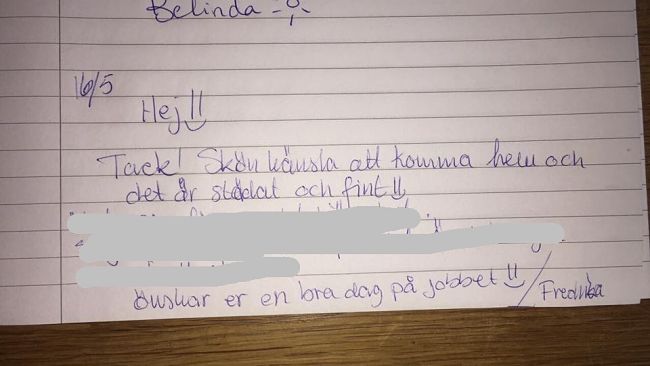 Belinda
16/5
Hej!!
Tack! Skön känsla att komma hem och
det är städat och fint!!
önskar er en bra dag på jobbet!!
/Fredrika